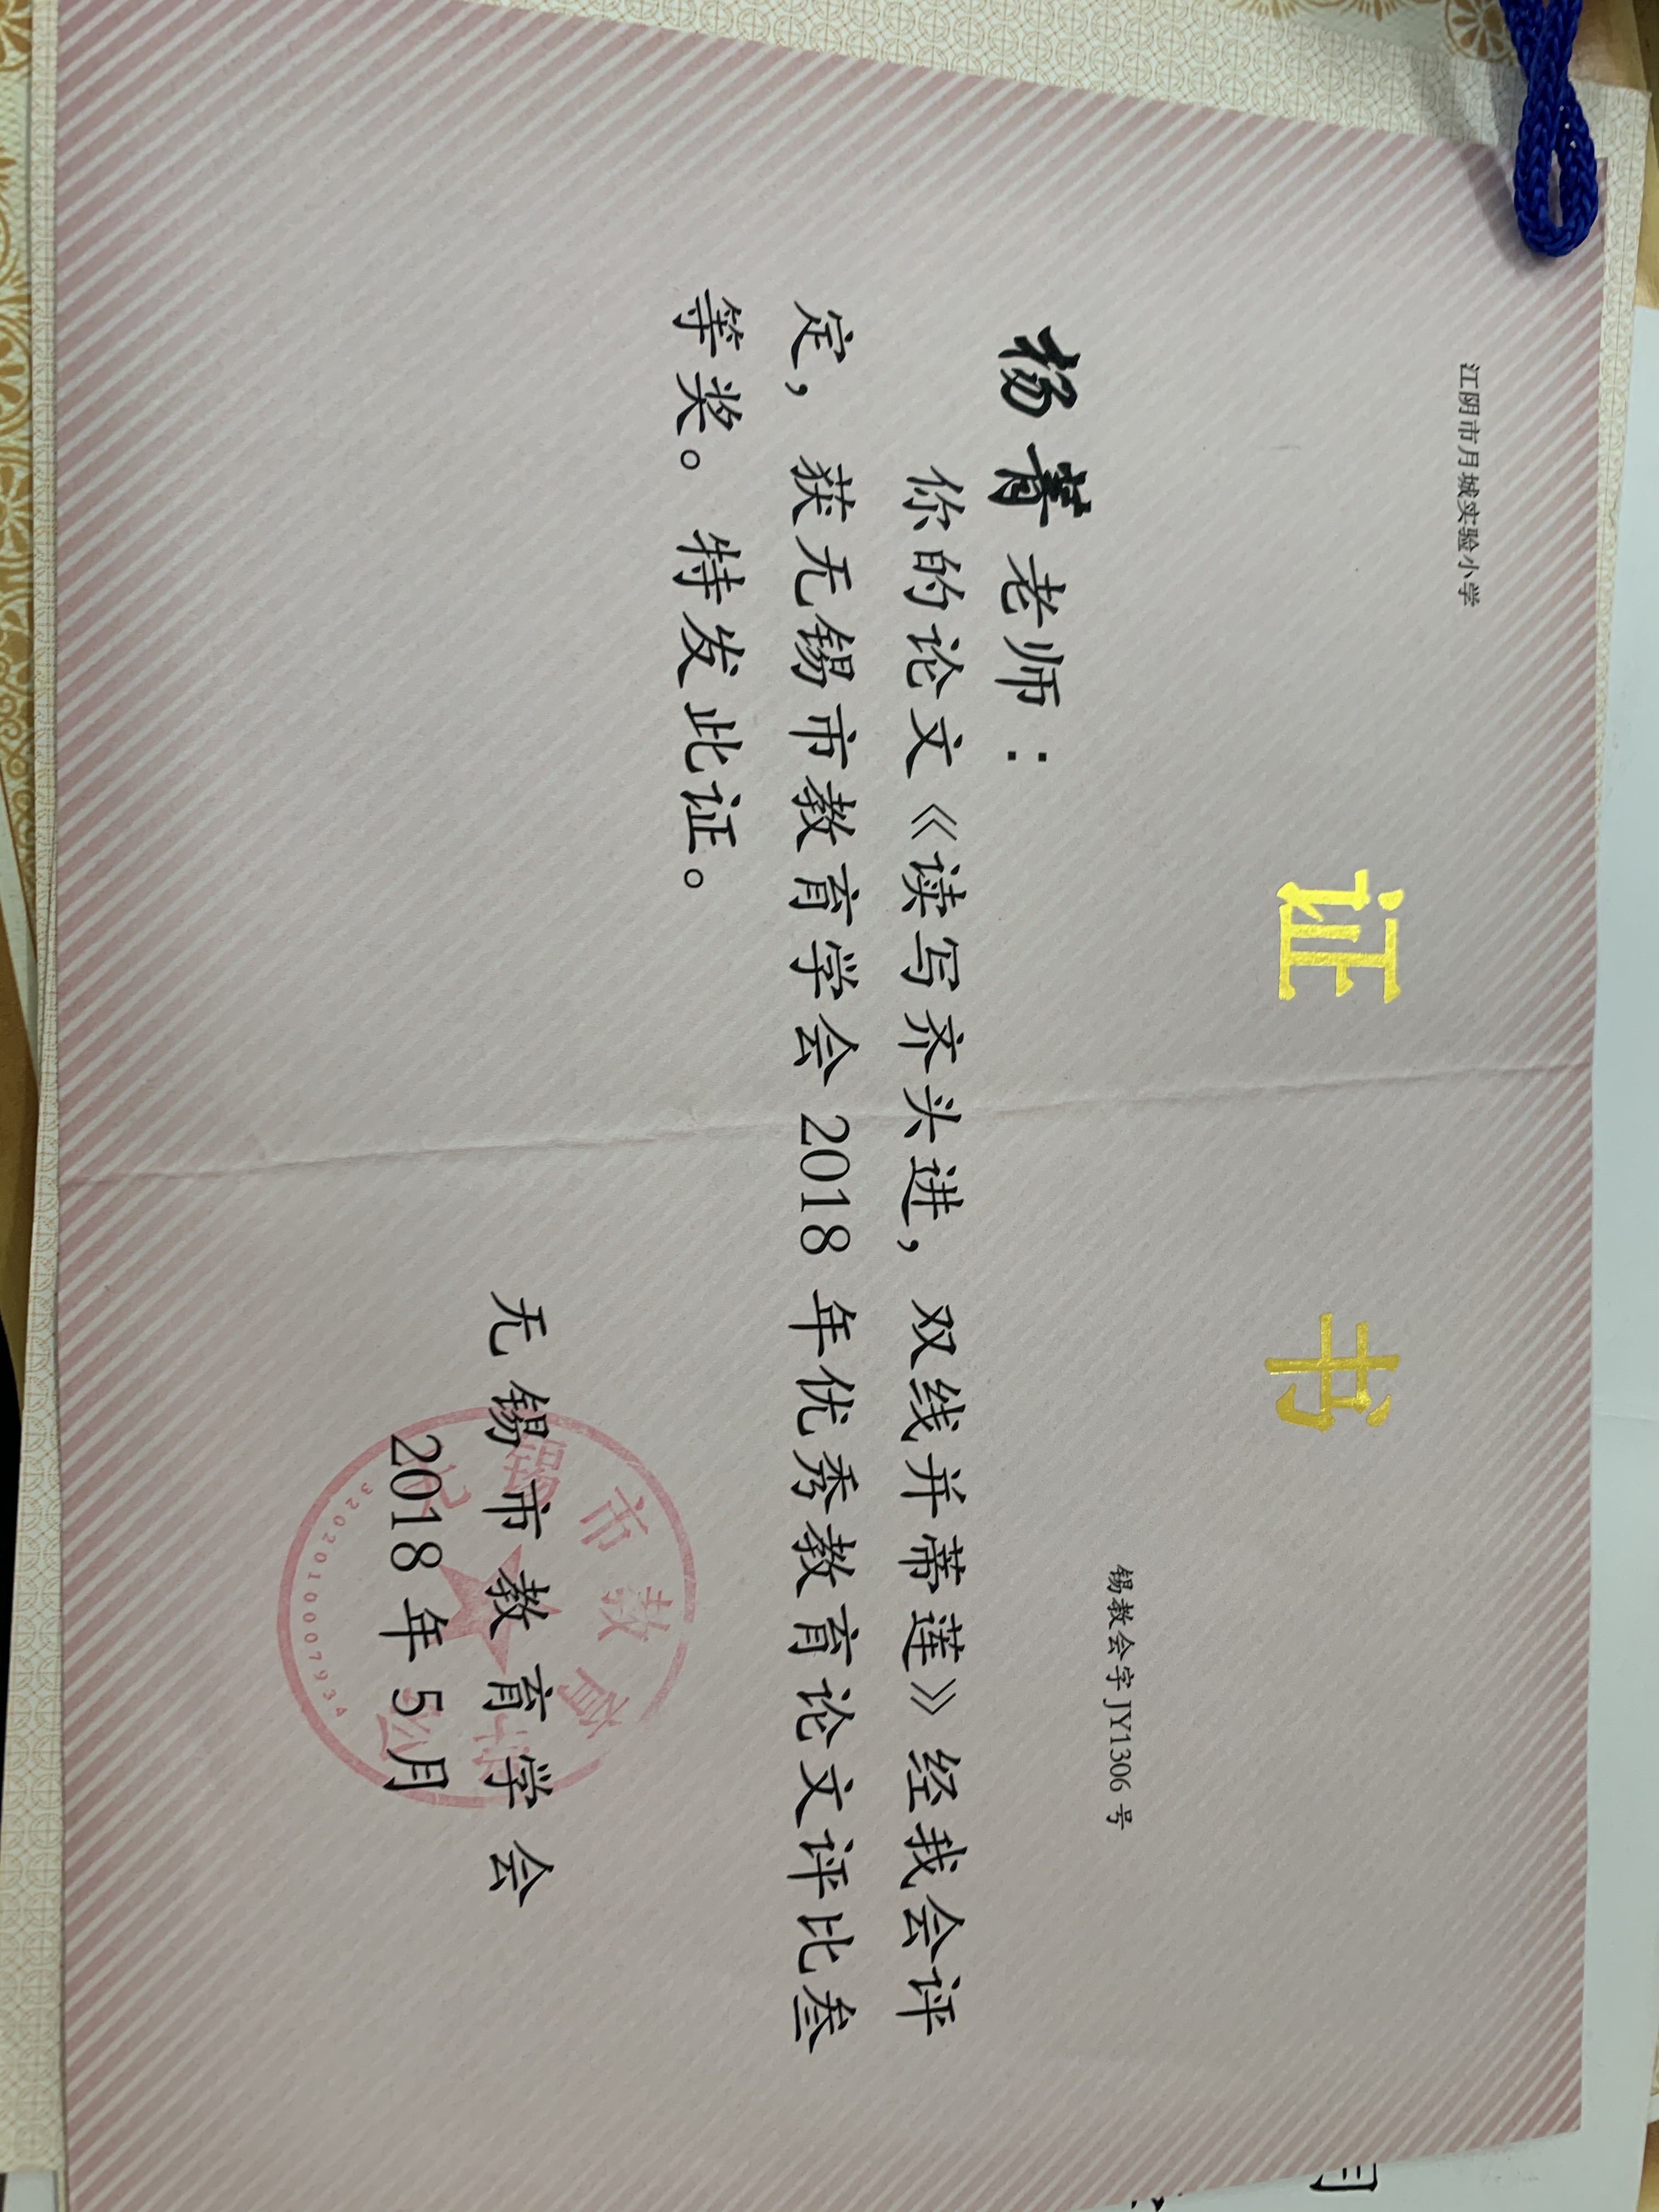 江阴市月城实验小学
证 书
锡教会字 JY1306 号
杨菁老师：
你的论文《读写齐头进，双线并蒂莲》经我会评
定，获无锡市教育学会 2018 年优秀教育论文评比叁
等奖。特发此证。
无锡市教育学会
2018 年 5 月
无锡市教育学会
3202010007934